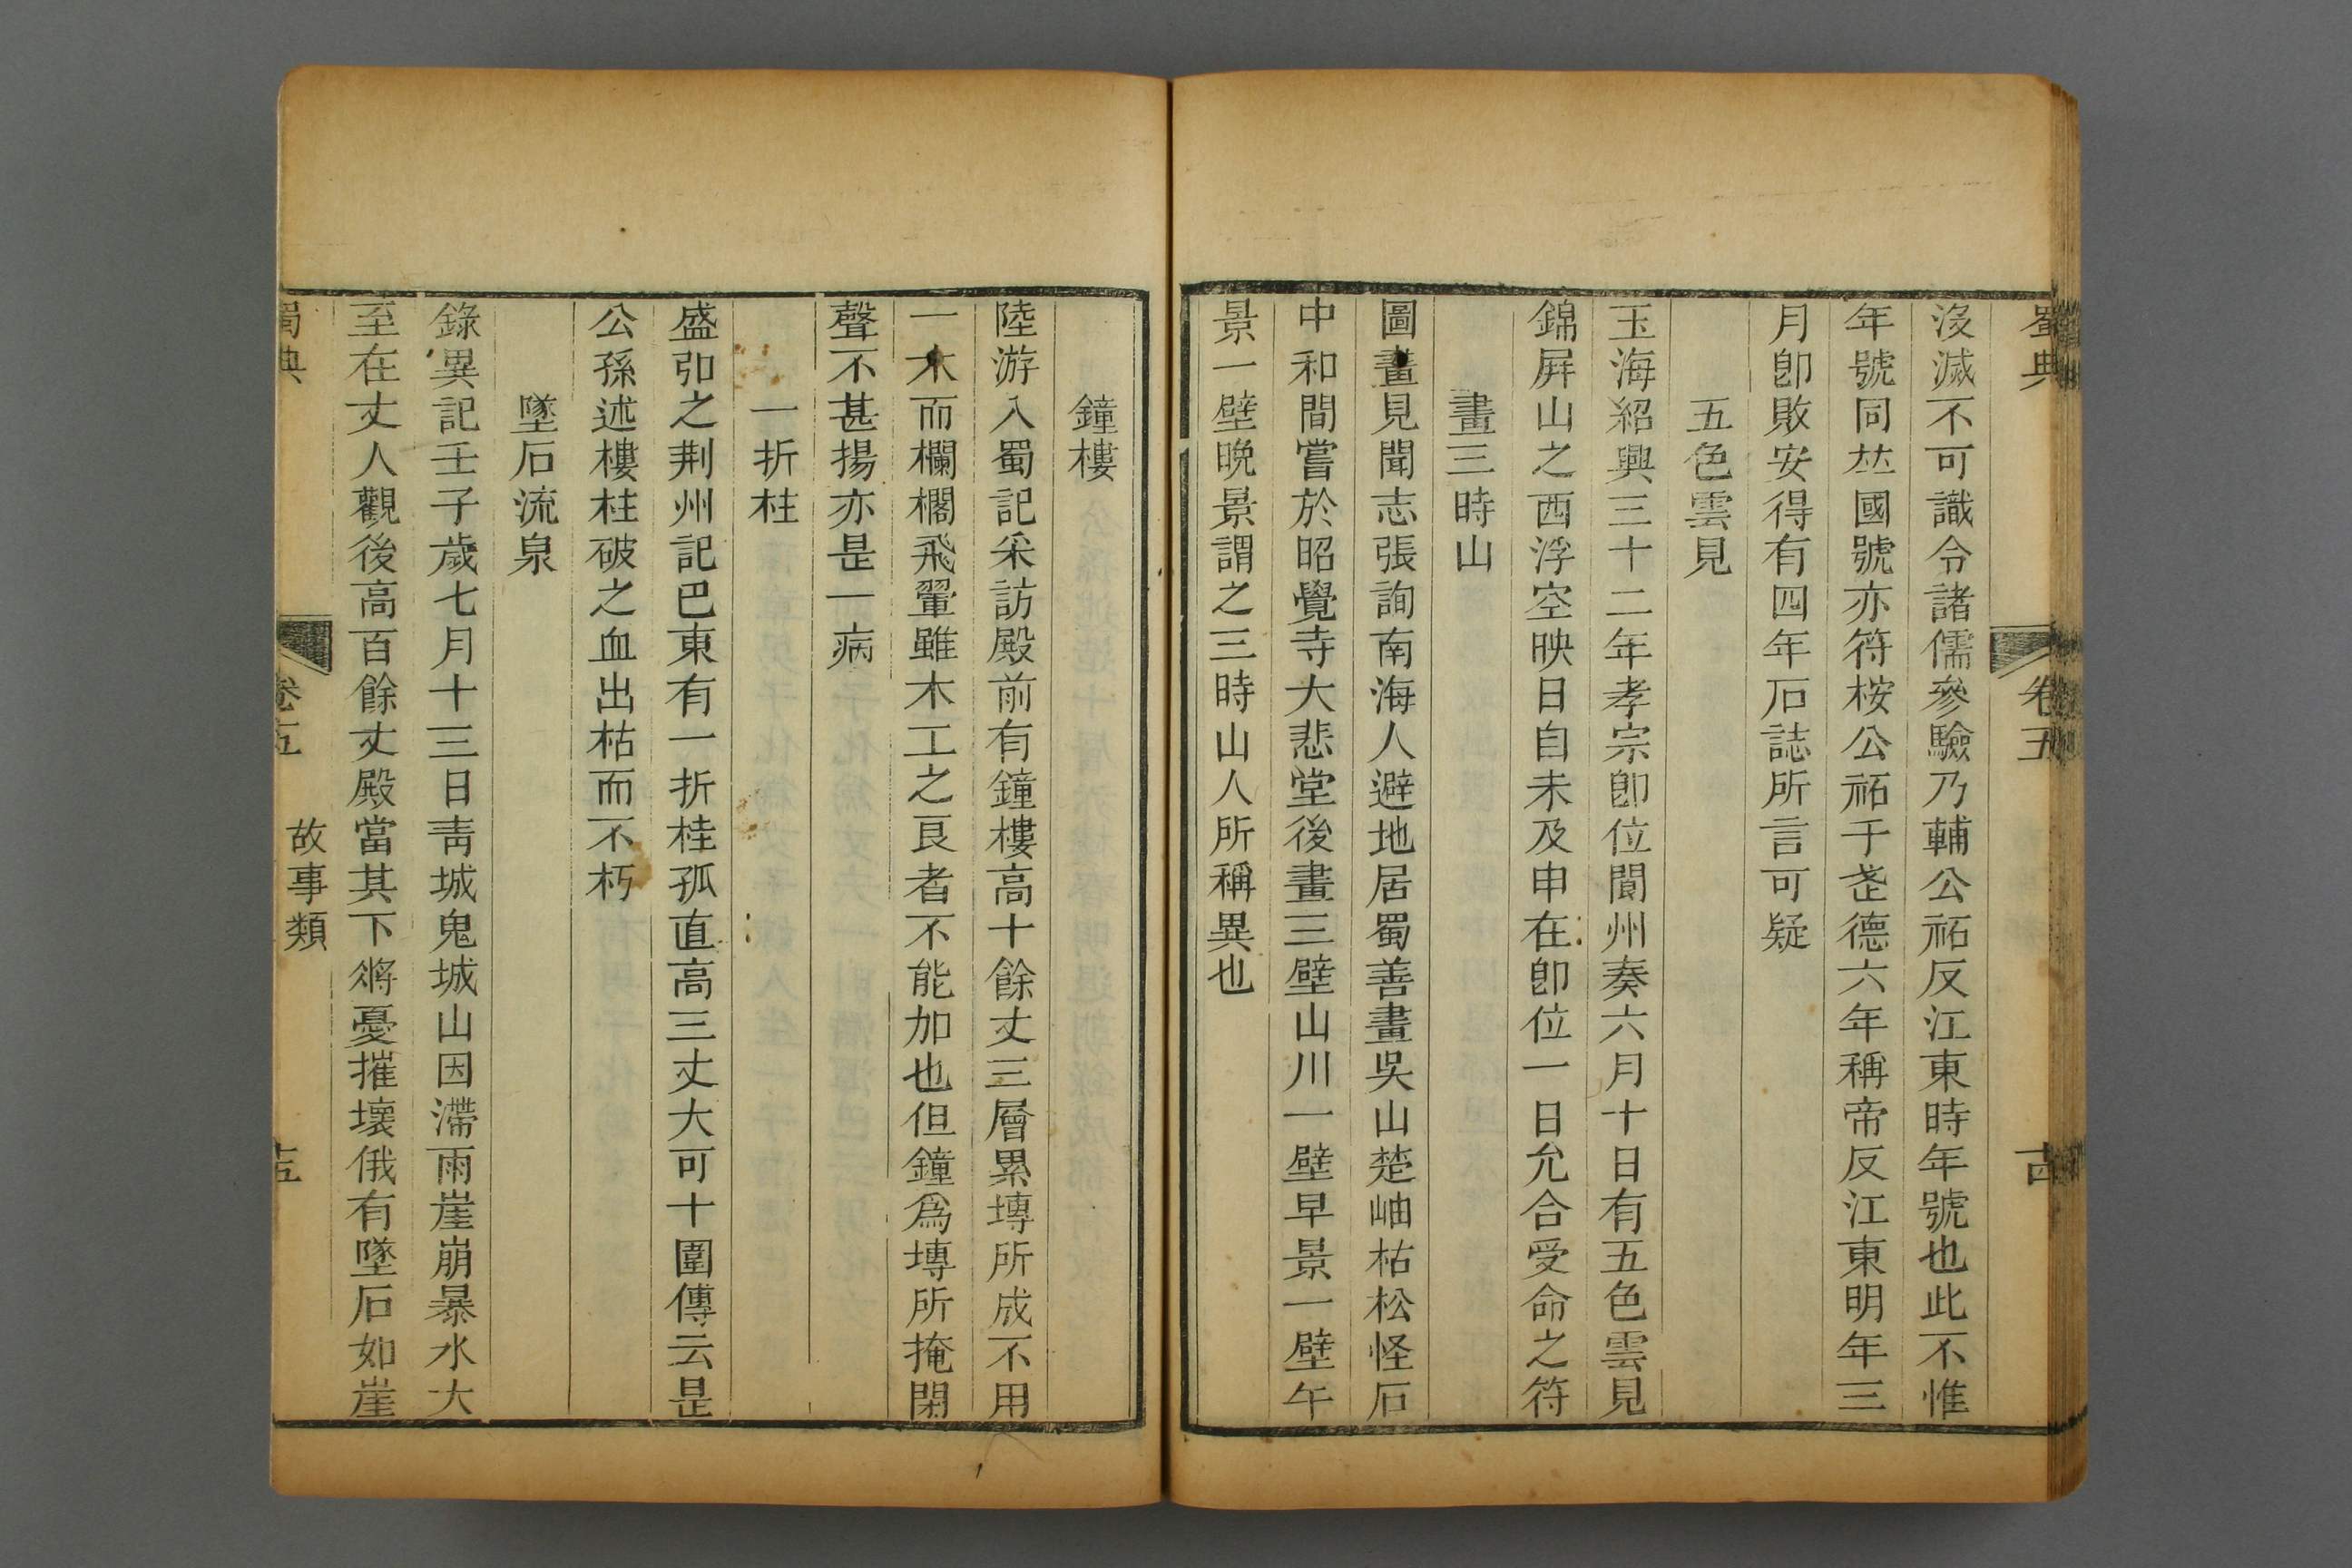 蜀典 卷五 古
沒滅不可識令諸儒參驗乃輔公祏反江東時年號也此不惟
年號同𠀤國號亦符桉公祏于武德六年稱帝反江東明年三
月卽敗安得有四年石誌所言可疑
五色雲見
玉海紹興三十二年孝宗卽位閬州奏六月十日有五色雲見
錦屛山之西浮空映日自未及申在卽位一日允合受命之符
畫三時山
圖畫見聞志張詢南海人避地居蜀善畫吳山楚岫枯松怪石
中和間嘗於昭覺寺大悲堂後畫三壁山川一壁早景一壁午
景一壁晚景謂之三時山人所稱異也
鐘樓
陸游入蜀記采訪殿前有鐘樓高十餘丈三層累塼所成不用
一木而欄櫊飛翬雖木工之良者不能加也但鐘爲塼所掩閉
聲不甚揚亦是一病
一折柱
盛弘之荆州記巴東有一折桂孤直高三丈大可十圍傳云是
公孫述樓柱破之血出枯而不朽
墜石流泉
錄異記壬子歲七月十三日靑城鬼城山因滯雨崖崩暴水大
至在丈人觀後高百餘丈殿當其下將憂摧壞俄有墜石如崖
蜀典 卷五 故事類 十五